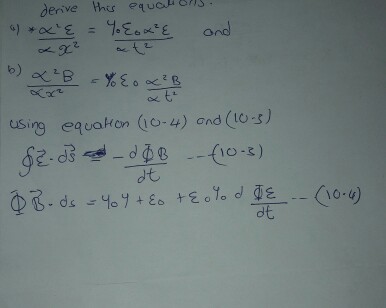 derive this equations.
a) * ∝²ℰ / ∝x² = μ₀ℰ₀∝²ℰ / ∝t² and
b) ∝²B / ∝x² = μ₀ℰ₀ ∝²B / ∝t²
using equation (10-4) and (10-3)
∮ℰ⃗·ds⃗ = -dΦB / dt --- (10-3)
Φ B⃗·ds = μ₀μ + ℰ₀ + ℰ₀μ₀ d Φℰ / dt --- (10-4)